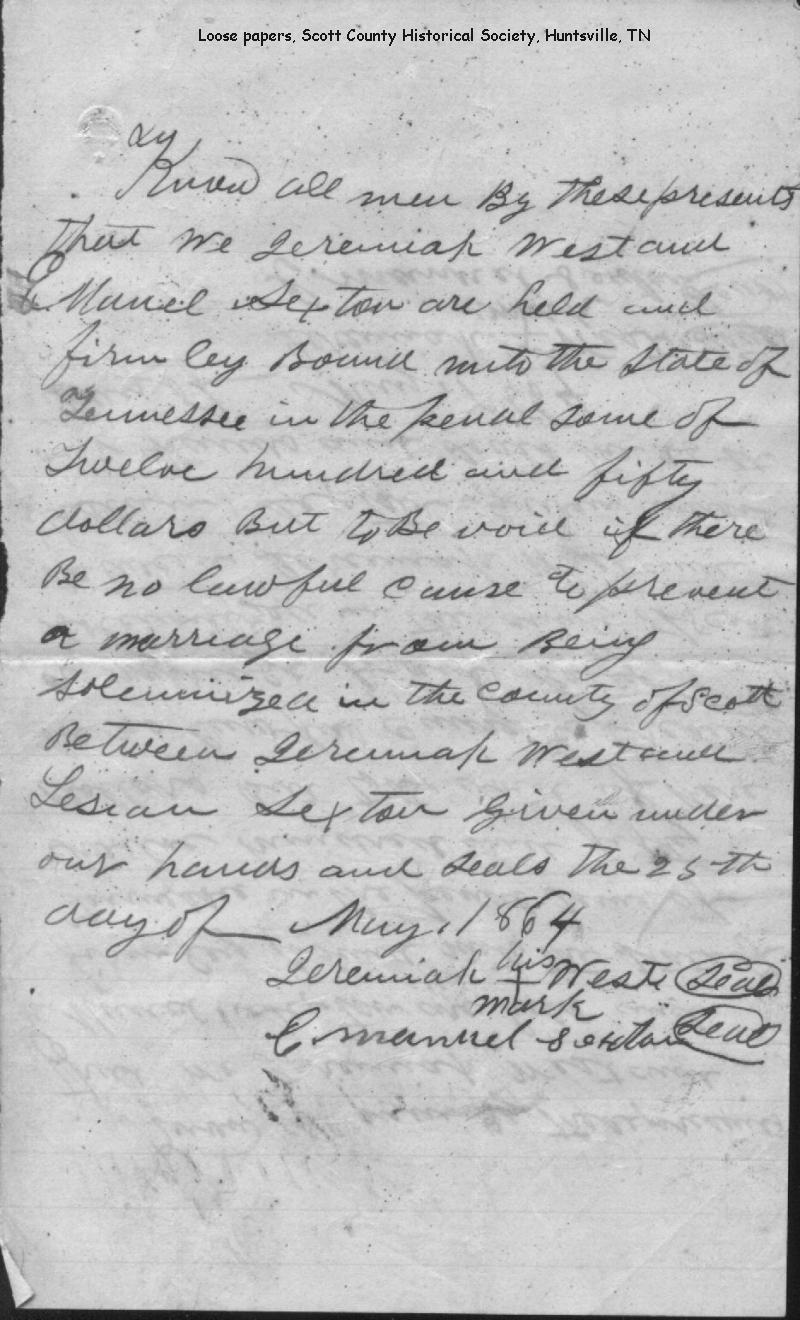 Loose papers, Scott County Historical Society, Huntsville, TN
Know all men By these presents
that We Jeremiah West and
E Manel Sexton are held and
firm ley Bound unto the State of
Tennessee in the penal some of
Twelve hundred and fifty
dollars But to Be void if there
Be no lawful cause to prevent
a marriage from Being
solemnized in the county of Scott
Between Jeremiah West and
Lesian Sexton Given under
our hands and seals the 25th
day of May, 1864
Jeremiah his West (Seal)
mark
Emanuel Sexton (Seal)